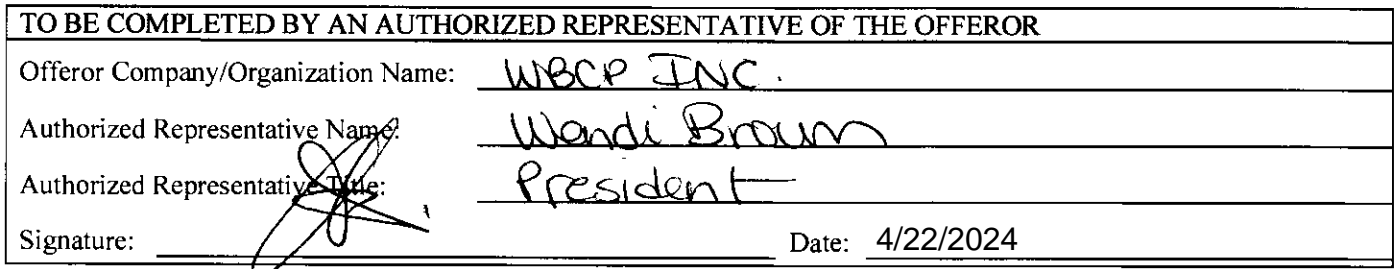 TO BE COMPLETED BY AN AUTHORIZED REPRESENTATIVE OF THE OFFEROR
Offeror Company/Organization Name: WBCP INC.
Authorized Representative Name: Wendi Brown
Authorized Representative Title: President
Signature: Date: 4/22/2024